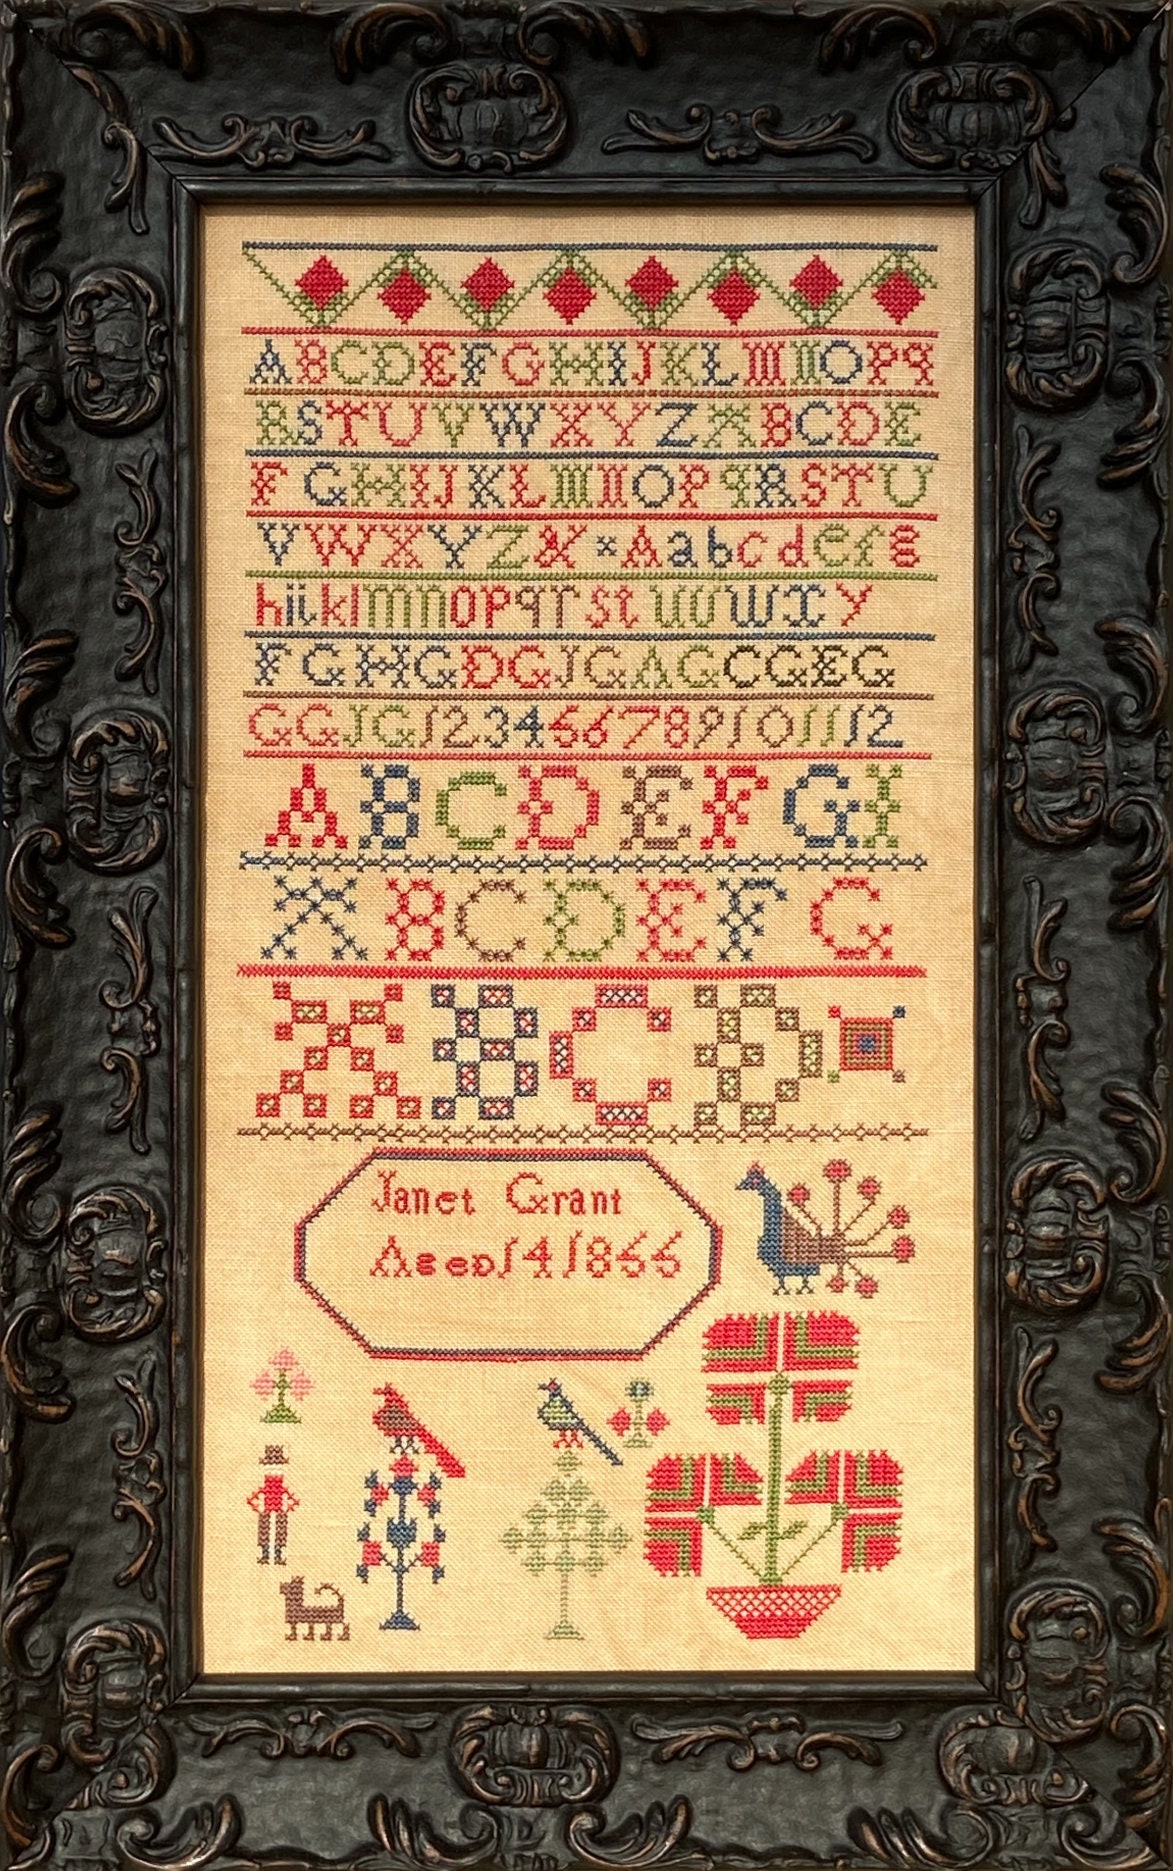 ABCDEFGHIJKLMNOPQ
RSTUVWXYZABCDE
FGHIJKLMNOPQRSTU
VWXYZ&×Aabcdefg
hijklmnopqrstuvwxy
FGHGDGJGAGCGEG
GGJG123456789101112
ABCDEFGI
ABCDEFG
ABCD
Janet Grant
Aged 14 1866